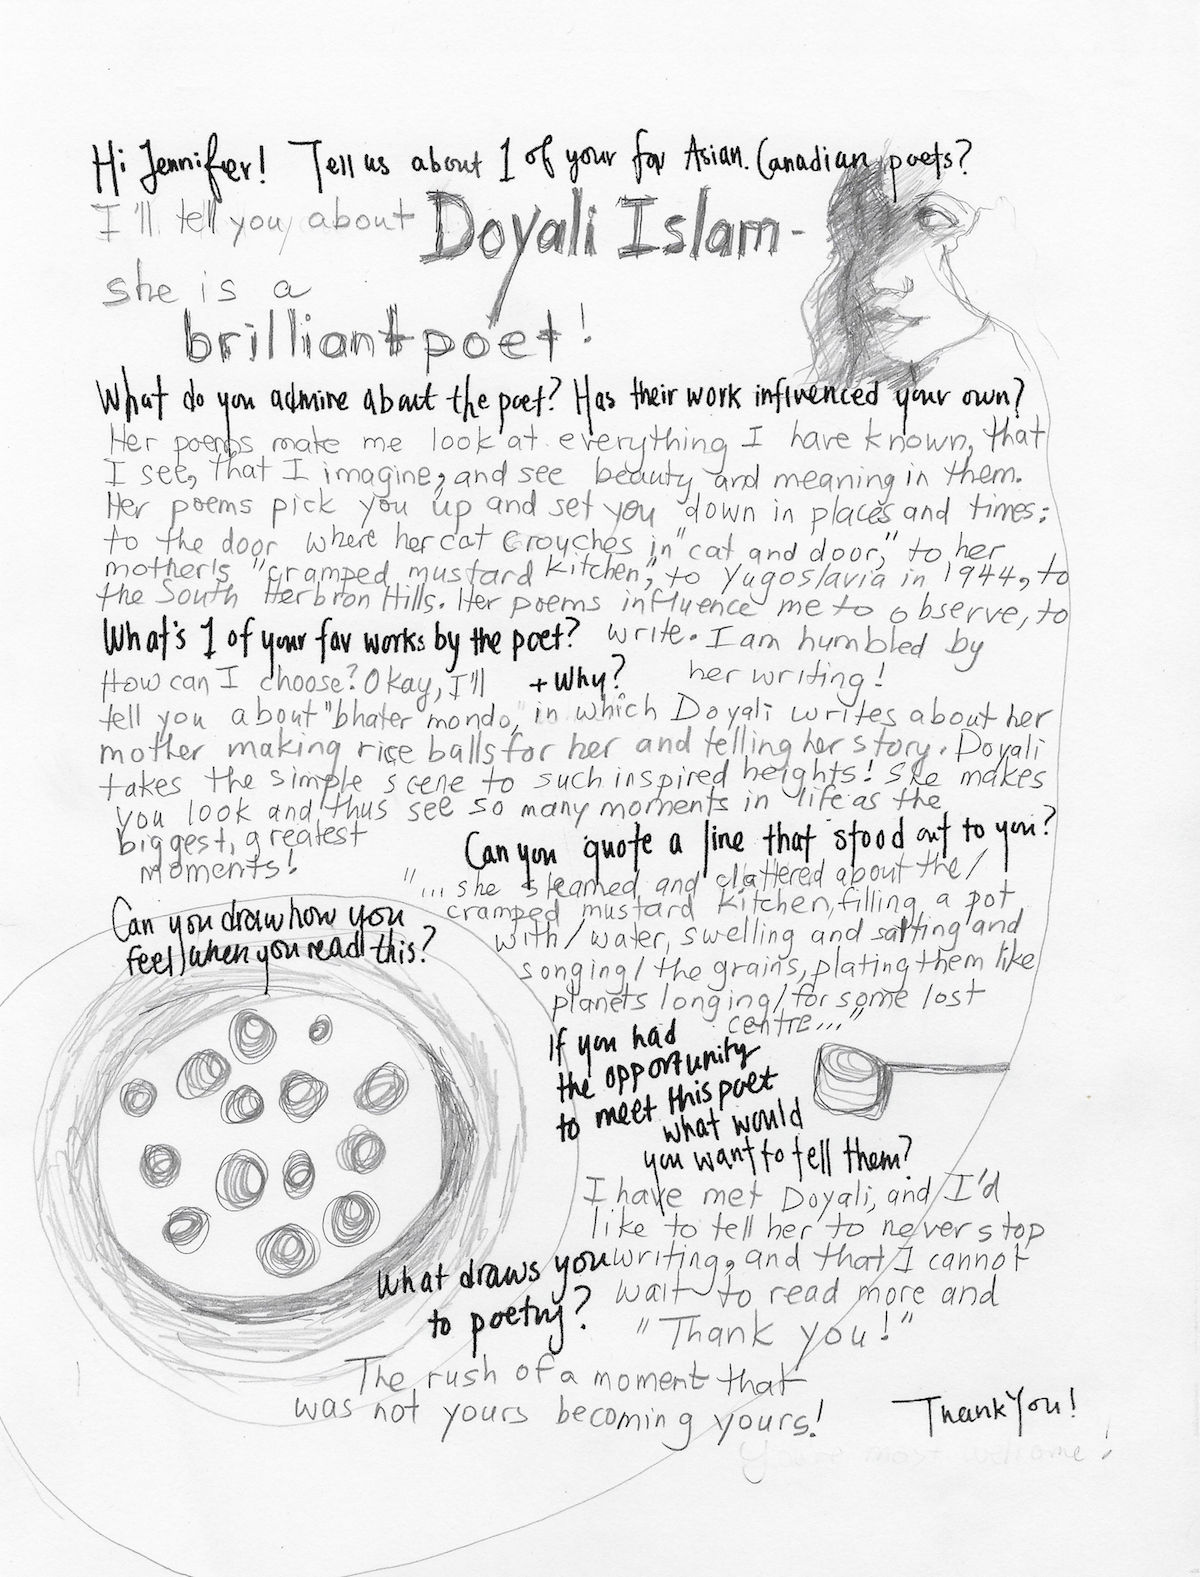 Hi Jennifer! Tell us about 1 of your fav Asian. Canadian poets?
I'll tell you about Doyali Islam-
she is a
brilliant poet!
What do you admire about the poet? Has their work influenced your own?
Her poems make me look at everything I have known, that
I see, that I imagine, and see beauty and meaning in them.
Her poems pick you up and set you down in places and times:
to the door where her cat crouches in "cat and door," to her
mother's "cramped mustard kitchen," to Yugoslavia in 1944, to
the South Herbron Hills. Her poems influence me to observe, to
write. I am humbled by
her writing!
What's 1 of your fav works by the poet?
+ Why?
How can I choose? Okay, I'll
tell you about "bhater mondo," in which Doyali writes about her
mother making rice balls for her and telling her story. Doyali
takes the simple scene to such inspired heights! She makes
you look and thus see so many moments in life as the
biggest, greatest
moments!
Can you quote a line that stood out to you?
"...she steamed and clattered about the/
cramped mustard kitchen, filling a pot
with/water, swelling and salting and
songing/ the grains, plating them like
planets longing/for some lost
centre..."
Can you draw how you
feel when you read this?
If you had
the opportunity
to meet this poet
what would
you want to tell them?
I have met Doyali, and I'd
like to tell her to never stop
writing, and that I cannot
wait to read more and
"Thank you!"
What draws you
to poetry?
The rush of a moment that
was not yours becoming yours!
Thank You!
You're most welcome!